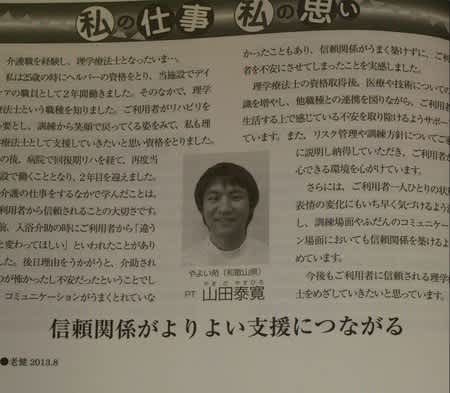 私の仕事 私の思い
介護職を経験し、理学療法士となったいま…。
私は25歳の時にヘルパーの資格をとり、当施設でデイ
ケアの職員として2年間働きました。そのなかで、理学
療法士という職種を知りました。ご利用者がリハビリを
要とし、訓練から笑顔で戻ってくる姿をみて、私も理
療法士として支援していきたいと思い資格をとりました。
の後、病院で回復期リハを経て、再度当
設で働くこととなり、2年目を迎えました。
介護の仕事をするなかで学んだことは、
利用者から信頼されることの大切さです。
前、入浴介助の時にご利用者から「違う
と変わってほしい」といわれたことがあり
した。後日理由をうかがうと、介助され
のが怖かったし不安だったということでし
コミュニケーションがうまくとれていな
かったこともあり、信頼関係がうまく築けずに、ご利
者を不安にさせてしまったことを実感しました。
理学療法士の資格取得後、医療や技術についての
識を増やし、他職種との連携を図りながら、ご利用者
生活する上で感じている不安を取り除けるようサポー
ています。また、リスク管理や訓練方針についてご
に説明し納得していただき、ご利用者が
心できる環境を心がけています。
さらには、ご利用者一人ひとりの状
表情の変化にもいち早く気づけるよう
し、訓練場面やふだんのコミュニケー
ン場面においても信頼関係を築けるよ
めています。
今後もご利用者に信頼される理学
士をめざしていきたいと思っています。
やよい苑(和歌山県)
PT 山田泰寛
やまだやすひろ
信頼関係がよりよい支援につながる
●老健 2013.8